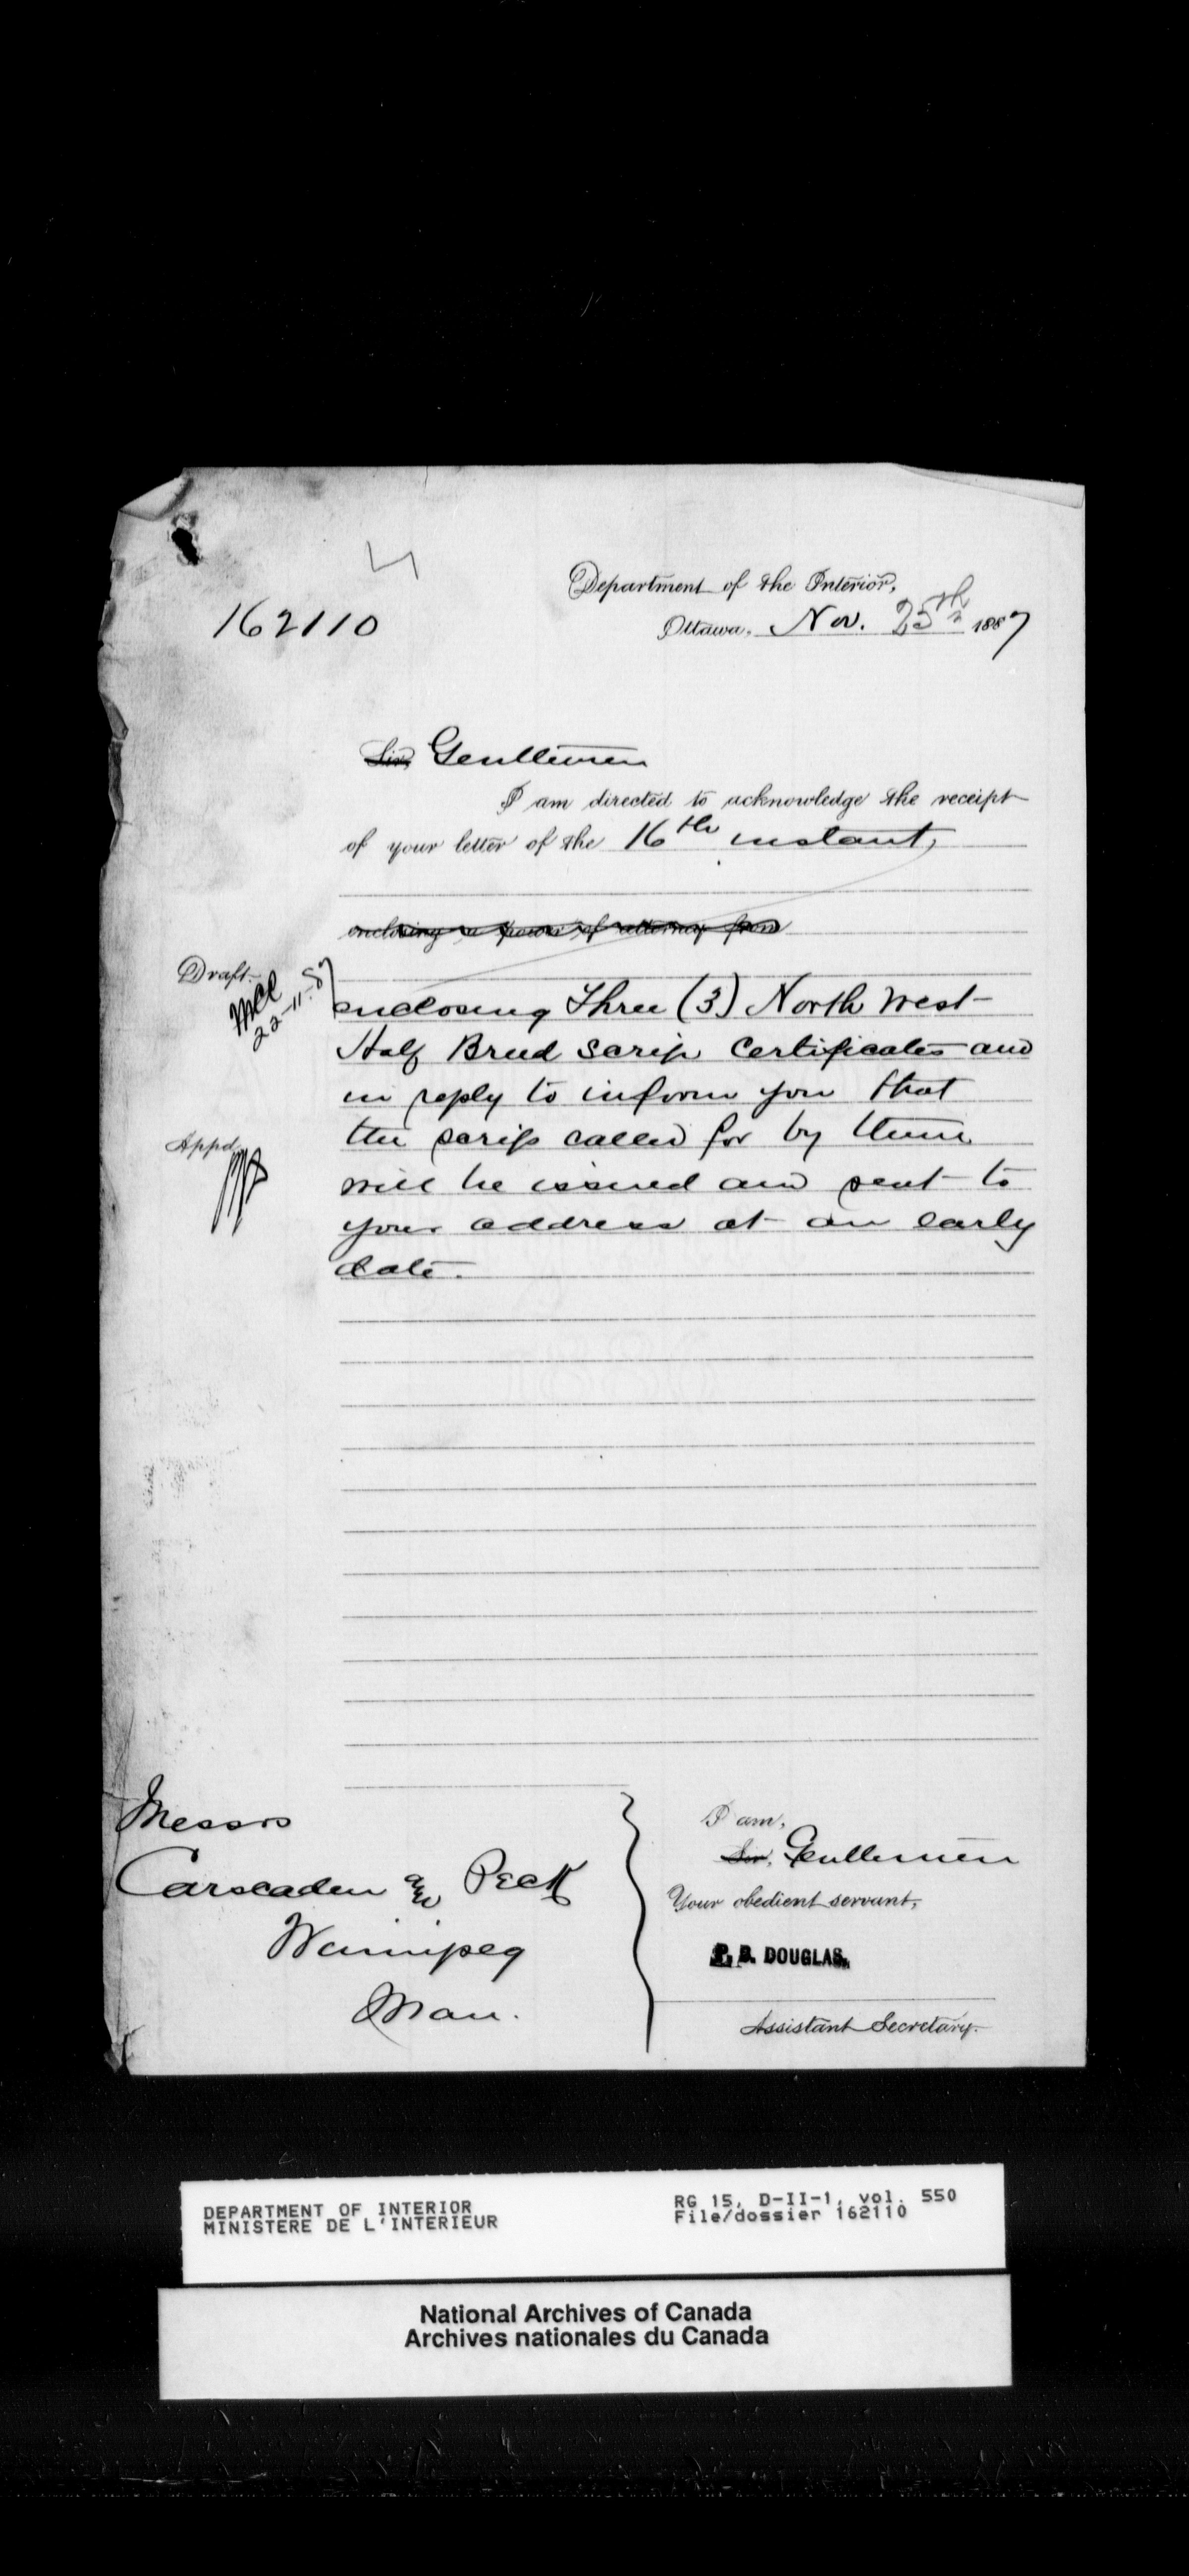 162110
Department of the Interior,
Ottawa, Nov. 25th 1887
Sir, Gentlemen
I am directed to acknowledge the receipt
of your letter of the 16th instant,
enclosing a power of attorney from
Draft.
22-11-87
enclosing Three (3) North West
Half Breed Scrip Certificates and
in reply to inform you that
the scrip called for by them
Appd.
will be issued and sent to
your address at an early
date.
Messrs
Carscaden & Peck
Winnipeg
Man.
I am,
Sir, Gentlemen
Your obedient servant,
P. B. DOUGLAS.
Assistant Secretary.
DEPARTMENT OF INTERIOR
MINISTERE DE L'INTERIEUR
RG 15, D-II-1, vol. 550
File/dossier 162110
National Archives of Canada
Archives nationales du Canada